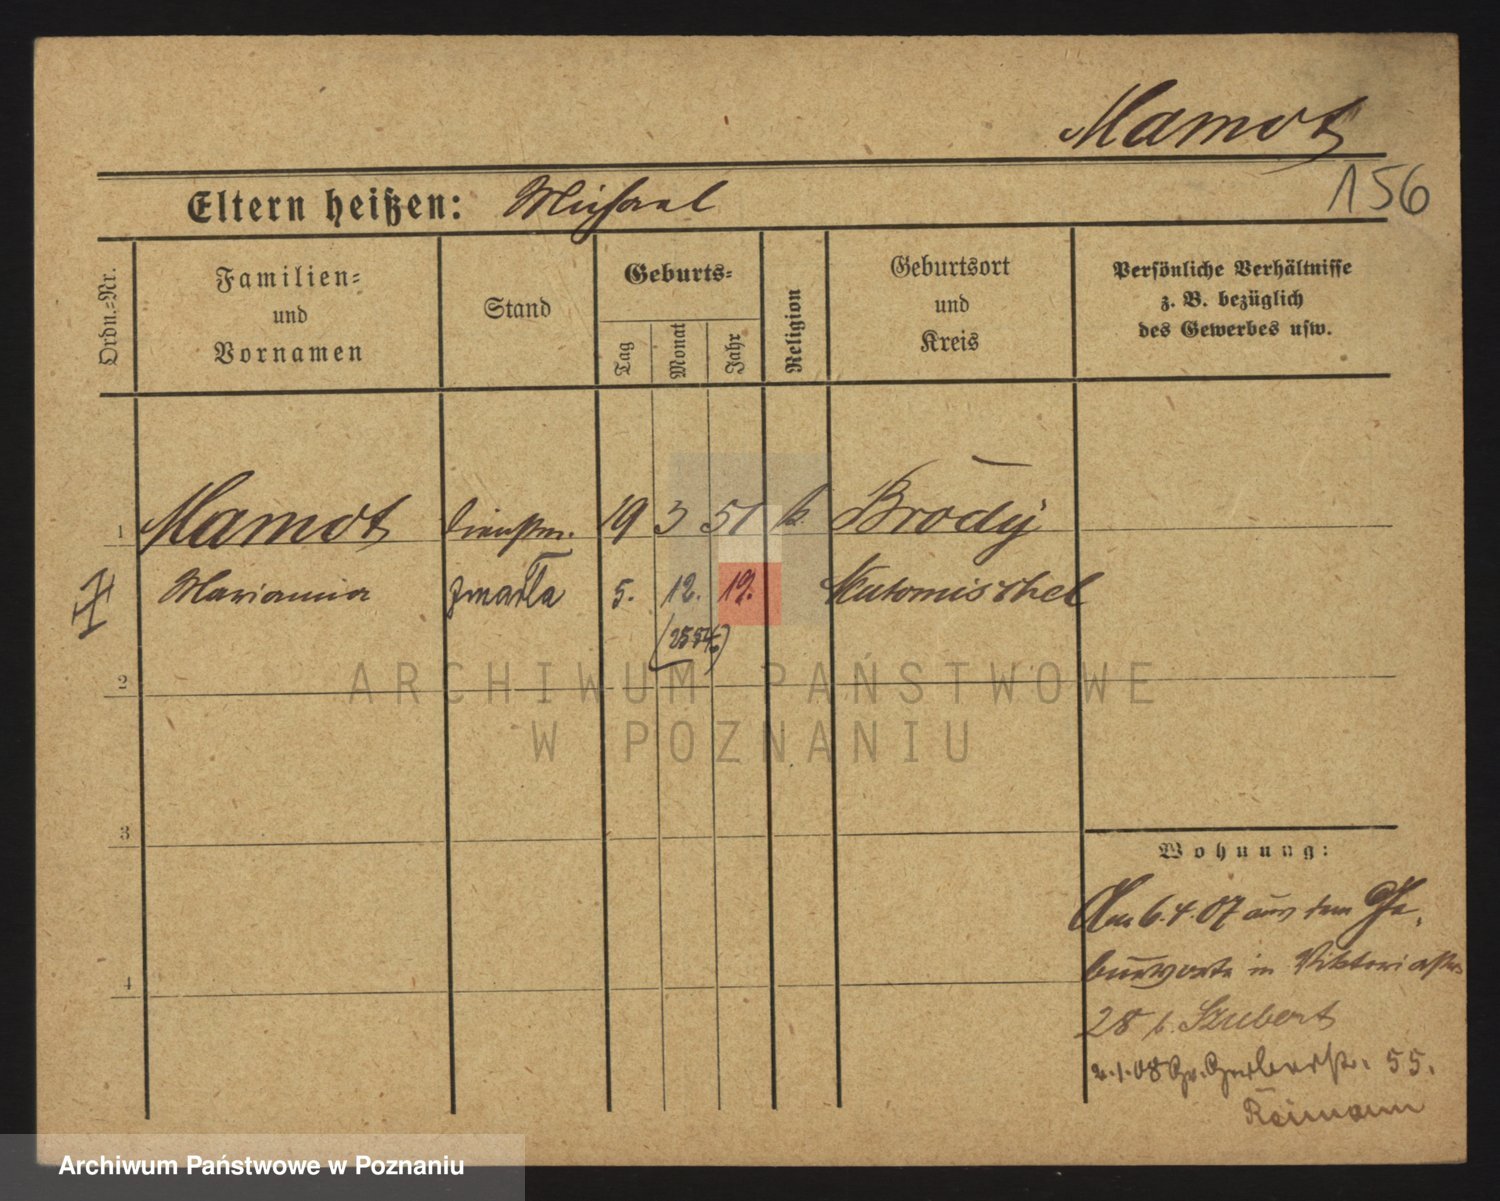 Mamot
156
Eltern heißen: Michael
Ordn.-Nr.
Familien-
und
Vornamen
Stand
Geburts-
Tag
Monat
Jahr
Religion
Geburtsort
und
Kreis
Persönliche Verhältnisse
z. B. bezüglich
des Gewerbes usw.
1 Mamot Dienstm. 19 3 51 k. Brody
Marianna zmarła 5. 12. 19. Neutomischel
2
ARCHIWUM PAŃSTWOWE
W POZNANIU
3
Wohnung:
4
6.4.07 aus dem Ge-
burtsorte in Viktoriastr
28 b. Szubert
2.1.08 Gr. Gerberstr. 55.
Reimann
Archiwum Państwowe w Poznaniu